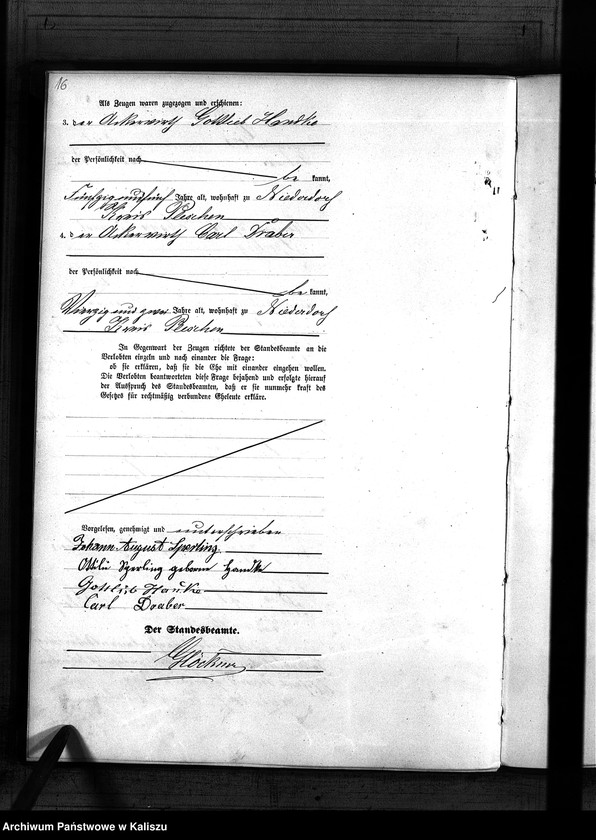 16
Als Zeugen waren zugezogen und erschienen:
3. der Ackerwirth Gottlieb Handke
der Persönlichkeit nach
be kannt,
Fünfzig und fünf Jahre alt, wohnhaft zu Niederdorf
Kreis Pleschen
4. der Ackerwirth Carl Draber
der Persönlichkeit nach
be kannt,
Vierzig und zwei Jahre alt, wohnhaft zu Niederdorf
Kreis Pleschen
In Gegenwart der Zeugen richtete der Standesbeamte an die
Verlobten einzeln und nach einander die Frage:
ob sie erklären, daß sie die Ehe mit einander eingehen wollen.
Die Verlobten beantworteten diese Frage bejahend und erfolgte hierauf
der Ausspruch des Standesbeamten, daß er sie nunmehr kraft des
Gesetzes für rechtmäßig verbundene Eheleute erkläre.
Vorgelesen, genehmigt und unterschrieben
Johann August Sperling
Ottilie Sperling geborne Handke
Gottlieb Hanke
Carl Draber
Der Standesbeamte.
Glöckner
Archiwum Państwowe w Kaliszu